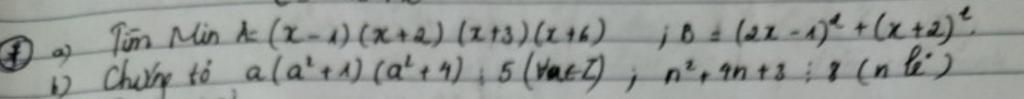 ① a) Tìm Min A = (x-1)(x+2)(x+3)(x+6) ; B = (2x-1)² + (x+2)².
b) Chứng tỏ a(a²+1)(a²+4) ⋮ 5 (∀a∈Z) ; n²+4n+3 ⋮ 8 (n lẻ)